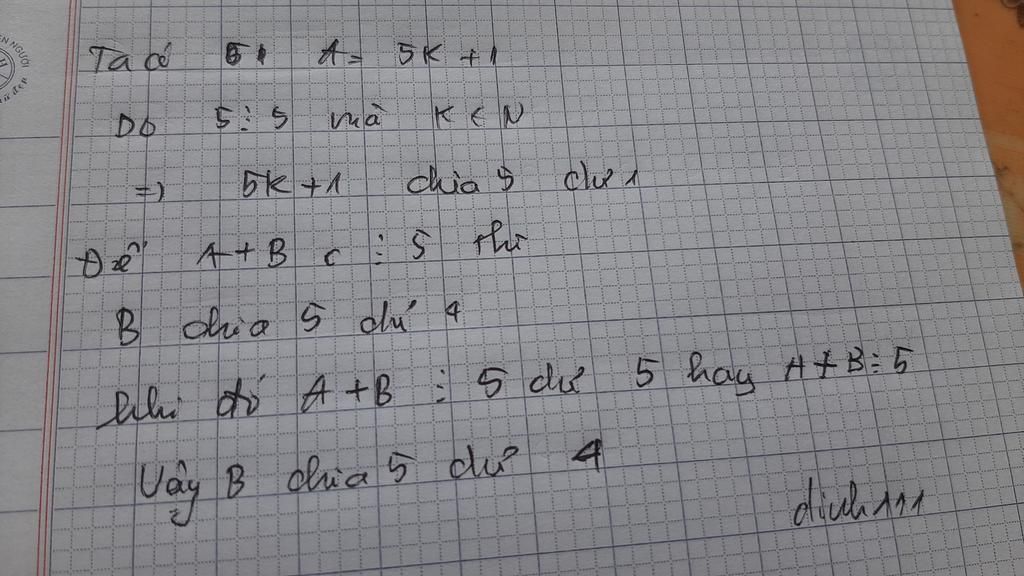 ÊN NGƯỜI
Ta có A = 5K + 1
Do 5 ⋮ 5 mà K ∈ N
=> 5K + 1 chia 5 dư 1
Để A + B ⋮ 5 thì
B chia 5 dư 4
khi đó A + B ⋮ 5 dư 5 hay A + B ⋮ 5
Vậy B chia 5 dư 4
dinh111